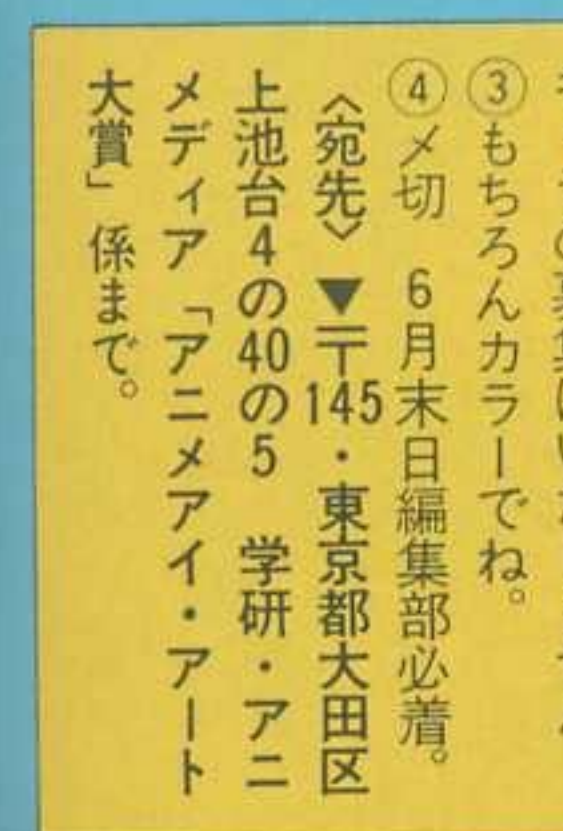 ③もちろんカラーでね。
④〆切　6月末日編集部必着。
〈宛先〉▼〒145・東京都大田区
上池台4の40の5　学研・アニ
メディア「アニメアイ・アート
大賞」係まで。